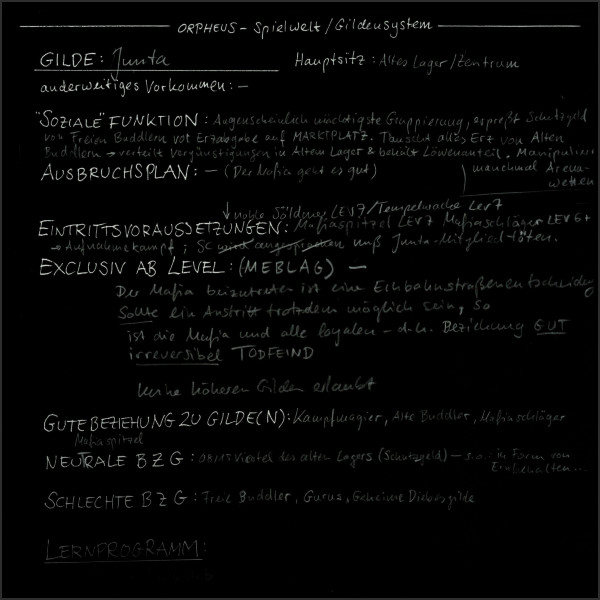 ORPHEUS - Spielwelt / Gildensystem
GILDE: Junta Hauptsitz: Altes Lager/Zentrum
anderweitiges Vorkommen: -
"SOZIALE" FUNKTION: Augenscheinlich mächtigste Gruppierung, erpreßt Schutzgeld
von Freien Buddlern vor Erzabgabe auf MARKTPLATZ. Tauscht alles Erz von Alten
Buddlern → verteilt Vergünstigungen in Altem Lager & behält Löwenanteil. Manipuliert
AUSBRUCHSPLAN: - (Der Mafia geht es gut) manchmal Arena-
wetten
↓ noble Söldner LEV7/Tempelwache LEV7
EINTRITTSVORAUSSETZUNGEN: Mafiaspitzel LEV7 Mafiaschläger LEV6+
→ Aufnahmekampf; SC wird angesprochen muß Junta-Mitglied töten.
EXCLUSIV AB LEVEL: (MEBLAG) -
Der Mafia beizutreten ist eine Einbahnstraßenentscheidung
Sollte ein Austritt trotzdem möglich sein, so
ist die Mafia und alle loyalen - d.h. Beziehung GUT
irreversibel TODFEIND
keine höheren Gilden erlaubt
GUTE BEZIEHUNG ZU GILDE(N): Kampfmagier, Alte Buddler, Mafiaschläger
Mafiaspitzel
NEUTRALE BZG: des alten Lagers (Schutzgeld) - s.o. in Form von
Einbehalten...
SCHLECHTE BZG: Freie Buddler, Gurus, Geheime Diebesgilde
LERNPROGRAMM: